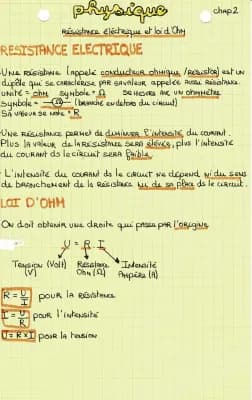 physique
chap2
résistance éléctrique et loi d'Ohm
RESISTANCE ELECTRIQUE
Une résistance (appelée conducteur ohmique / resistor) est un
dipôle qui se caractérise par sa valeur appelée aussi résistance.
unité = ohm symbole = Ω se mesure par un ohmmètre
symbole = (branché en dehors du circuit)
Sa valeur se note = R
Une résistance permet de diminuer l'intensité du courant.
Plus la valeur de la résistance sera élevée, plus l'intensité
du courant ds le circuit sera faible.
L'intensité du courant ds le circuit ne dépend ni du sens
de branchement de la résistance ni de sa place ds le circuit.
LOI D'OHM
On doit obtenir une droite qui passe par l'origine
U = R.I
Tension (Volt) Résistance Intensité
(V) Ohm (Ω) Ampère (A)
R = U/I pour la résistance
I = U/R pour l'intensité
U = R×I pour la tension